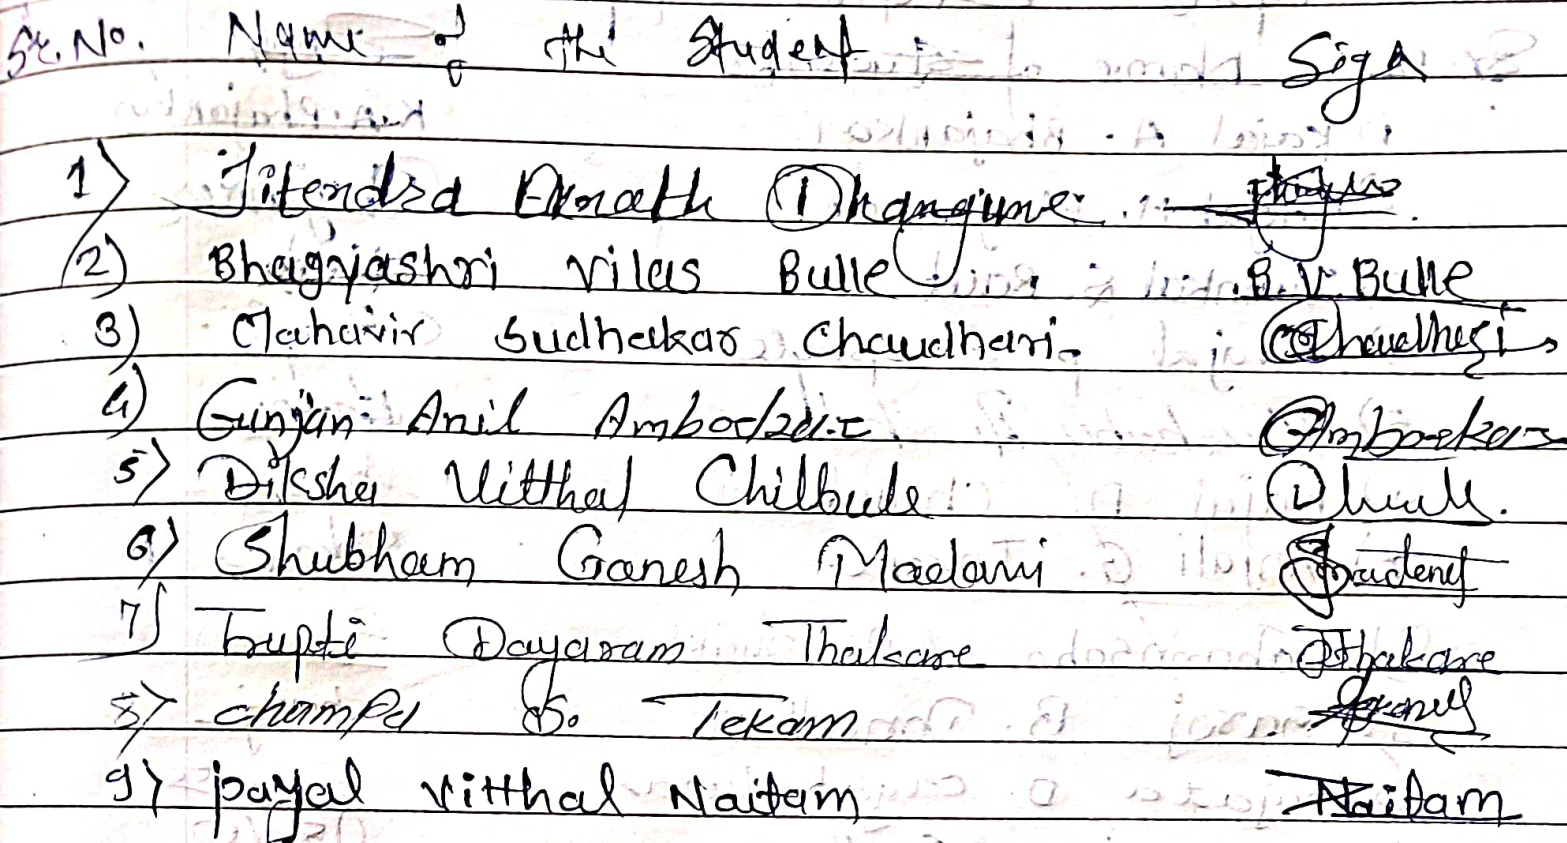 Sr. No. Name of the Student Sign
1) Jitendra Eknath Dhangune
2) Bhagyashri Vilas Bulle B. V. Bulle
3) Mahavir Sudhakar Chaudhari. Chaudhari
4) Gunjan Anil Ambodkar
5) Diksha Vitthal Chilbule
6) Shubham Ganesh Madavi
7) Trupti Dayaram Thakare Thakare
8) Champa D. Tekam
9) payal vitthal Naitam Naitam